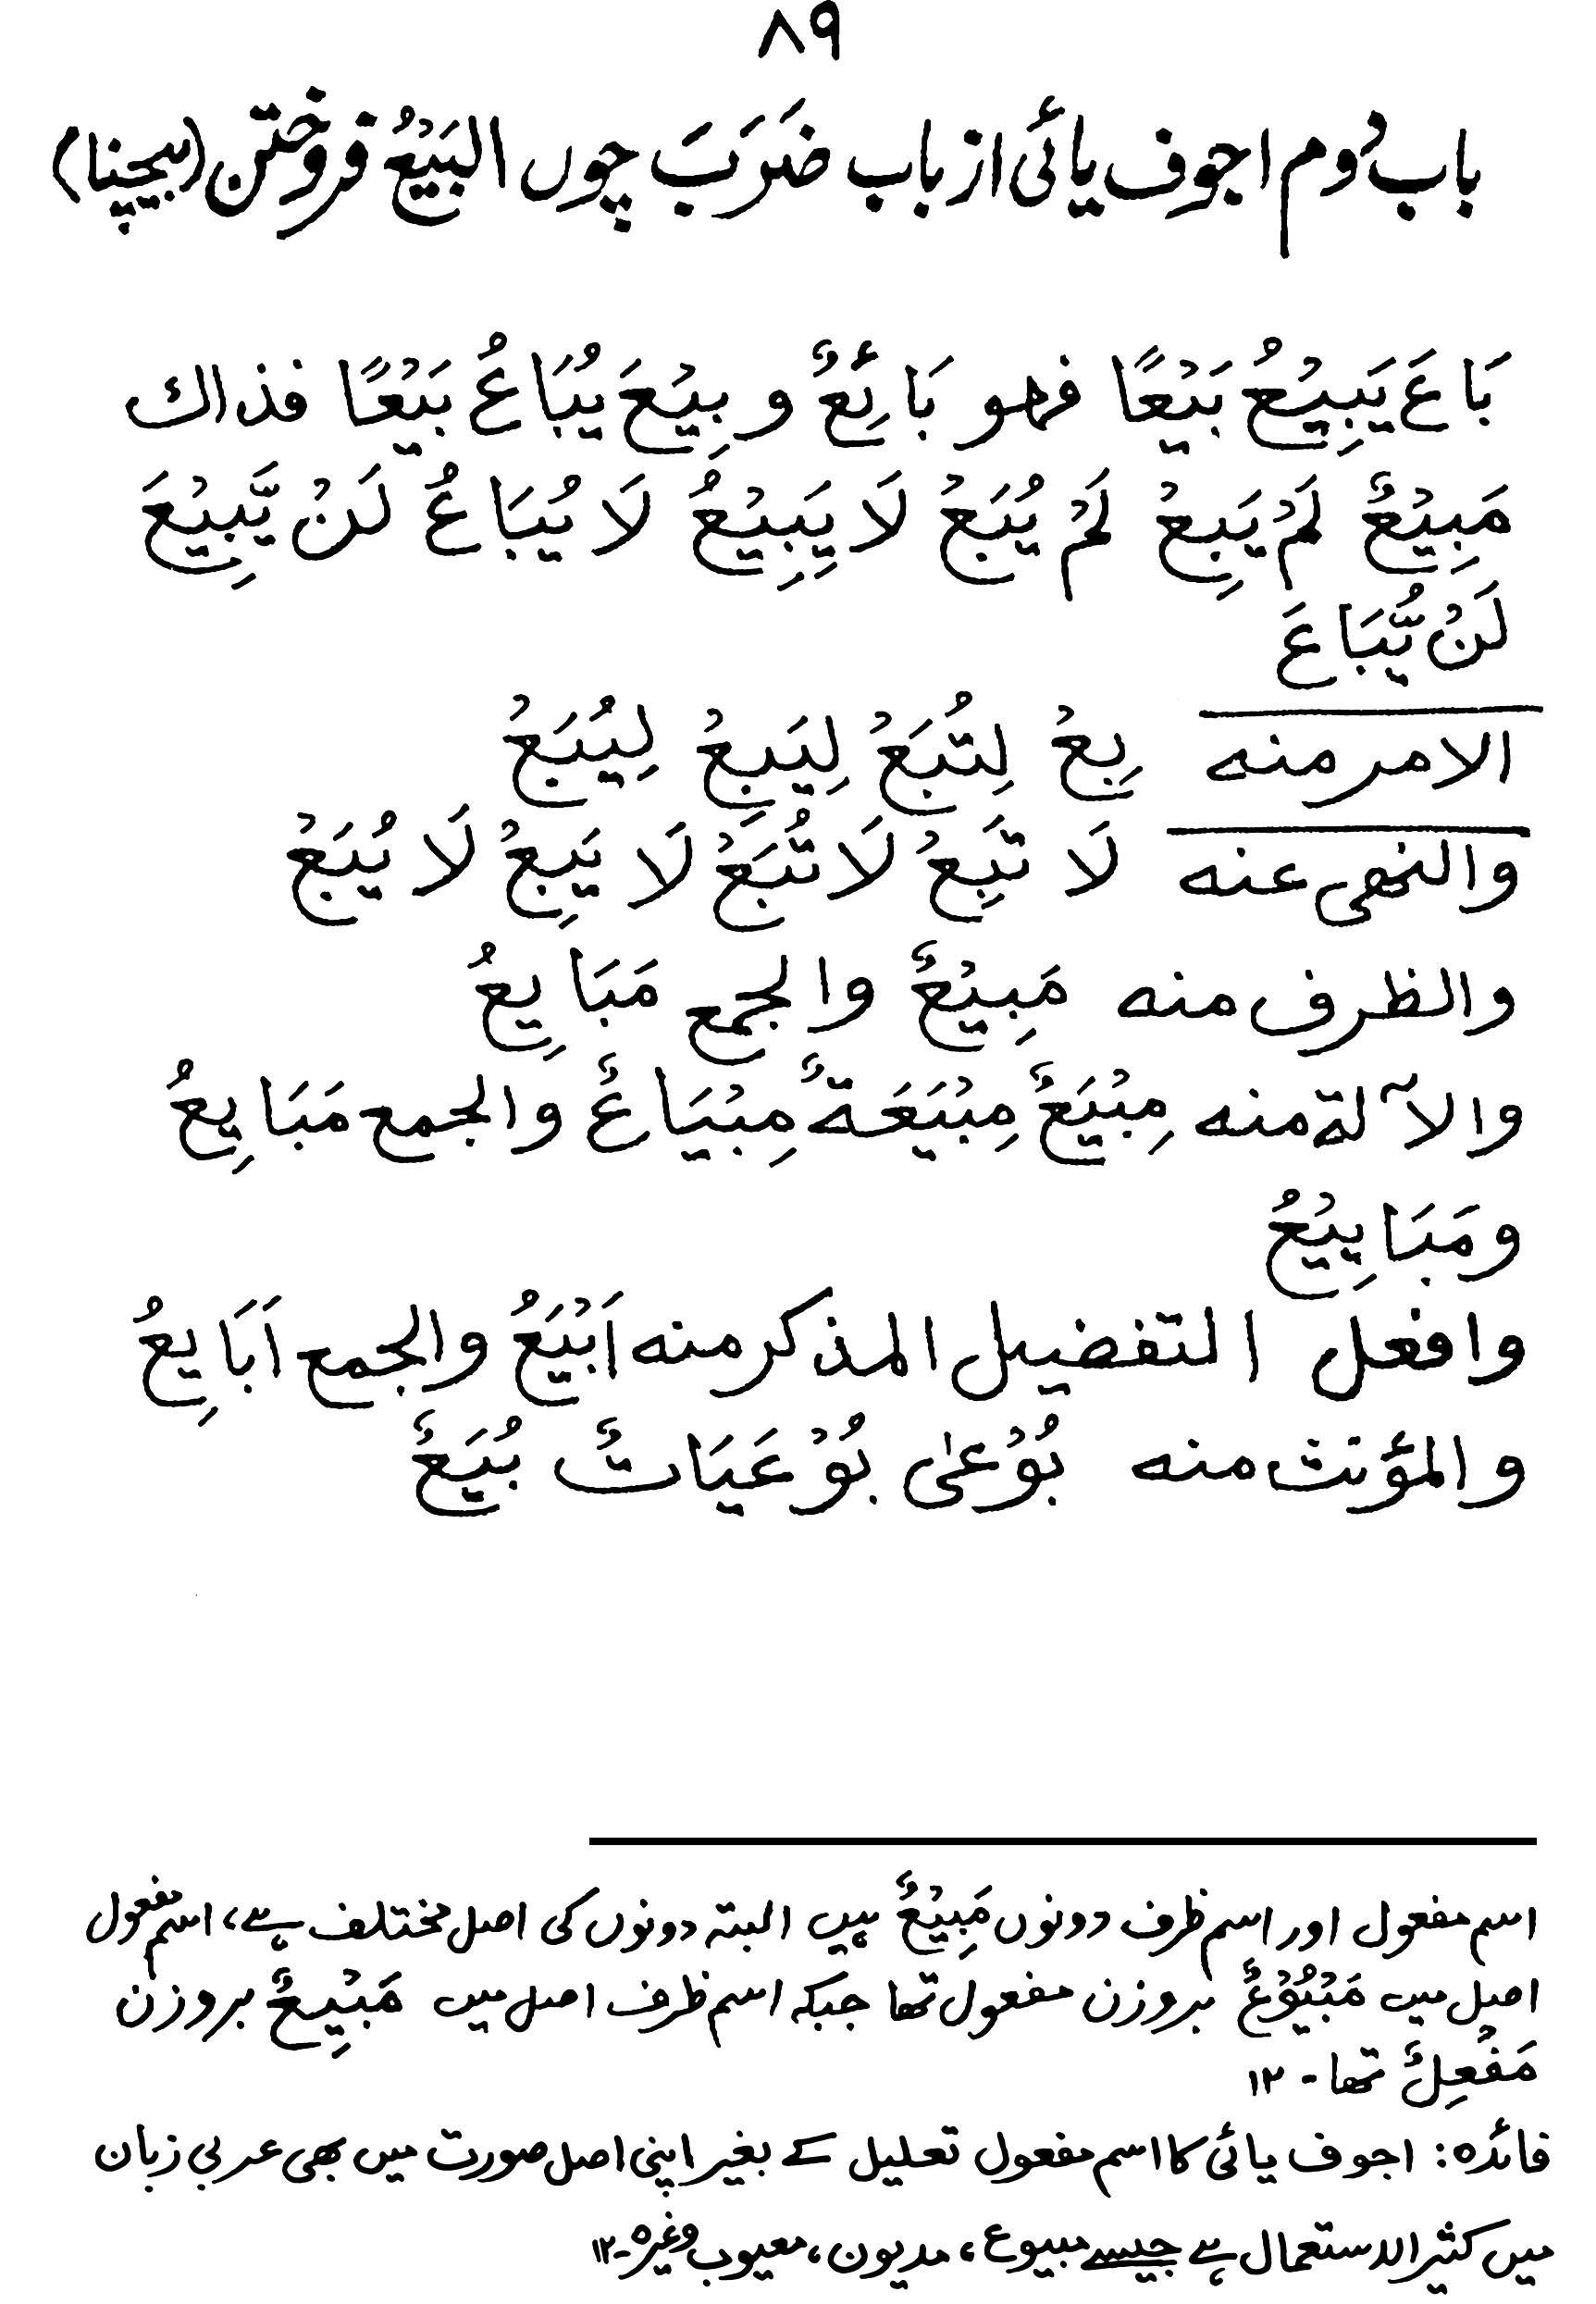 ۸۹
باب دُوم اجوف یائی از باب ضَرَبَ چوں البَیْعُ فروختن (بیچنا)
بَاعَ یَبِیْعُ بَیْعًا فهو بَائِعٌ و بِیْعَ یُبَاعُ بَیْعًا فذاك
مَبِیْعٌ لَمْ یَبِعْ لَمْ یُبَعْ لَا یَبِیْعُ لَا یُبَاعُ لَنْ یَّبِیْعَ
لَنْ یُّبَاعَ
الامر منه بِعْ لِتُبَعْ لِیَبِعْ لِیُبَعْ
والنهی عنه لَا تَبِعْ لَا تُبَعْ لَا یَبِعْ لَا یُبَعْ
والظرف منه مَبِیْعٌ والجمع مَبَایِعُ
والآلة منه مِبْیَعٌ مِبْیَعَةٌ مِبْیَاعٌ والجمع مَبَایِعُ
ومَبَایِیْعُ
وافعل التفضیل المذکر منه اَبْیَعُ والجمع اَبَایِعُ
والمؤنث منه بُوْعٰی بُوْعَیَاتٌ بُیَعٌ
اسم مفعول اور اسم ظرف دونوں مَبِیْعٌ ہیں البتہ دونوں کی اصل مختلف ہے، اسم مفعول
اصل میں مَبْیُوْعٌ بروزن مفعول تھا جبکہ اسم ظرف اصل میں مَبْیِعٌ بروزن
مَفْعِلٌ تھا۔ ۱۲
فائدہ: اجوف یائی کا اسم مفعول تعلیل کے بغیر اپنی اصل صورت میں بھی عربی زبان
میں کثیر الاستعمال ہے جیسے مبیوع، مدیون، معیوب وغیرہ۔ ۱۲